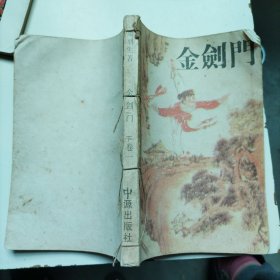 金劍門
金劍門 子卷一
中源出版社